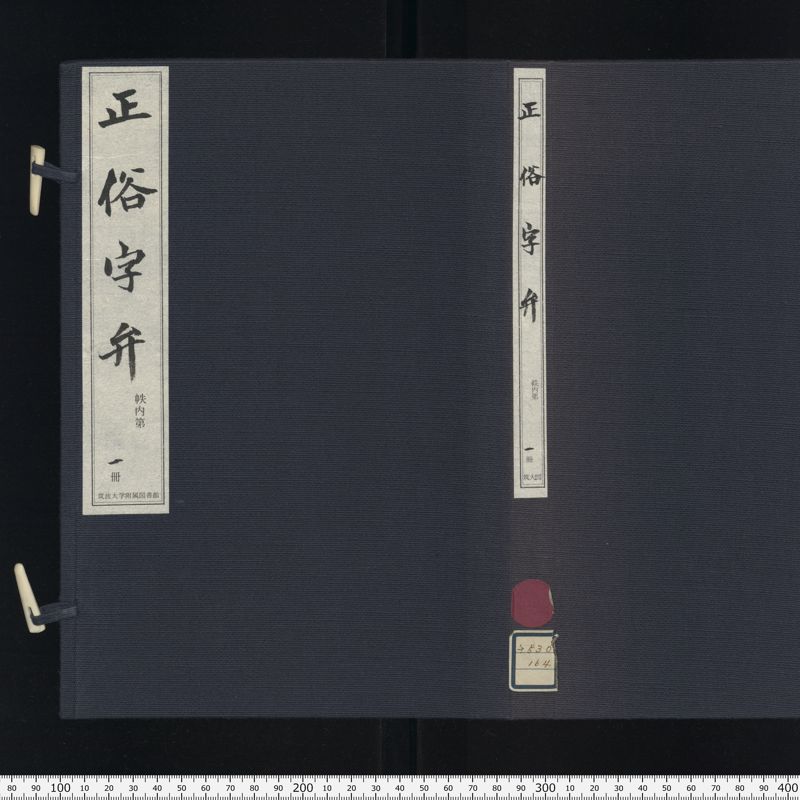 正俗字弁
帙内第
一冊
筑波大学附属図書館
正俗字弁
帙内第
一冊
筑大図
164
80 90 100 10 20 30 40 50 60 70 80 90 200 10 20 30 40 50 60 70 80 90 300 10 20 30 40 50 60 70 80 90 400